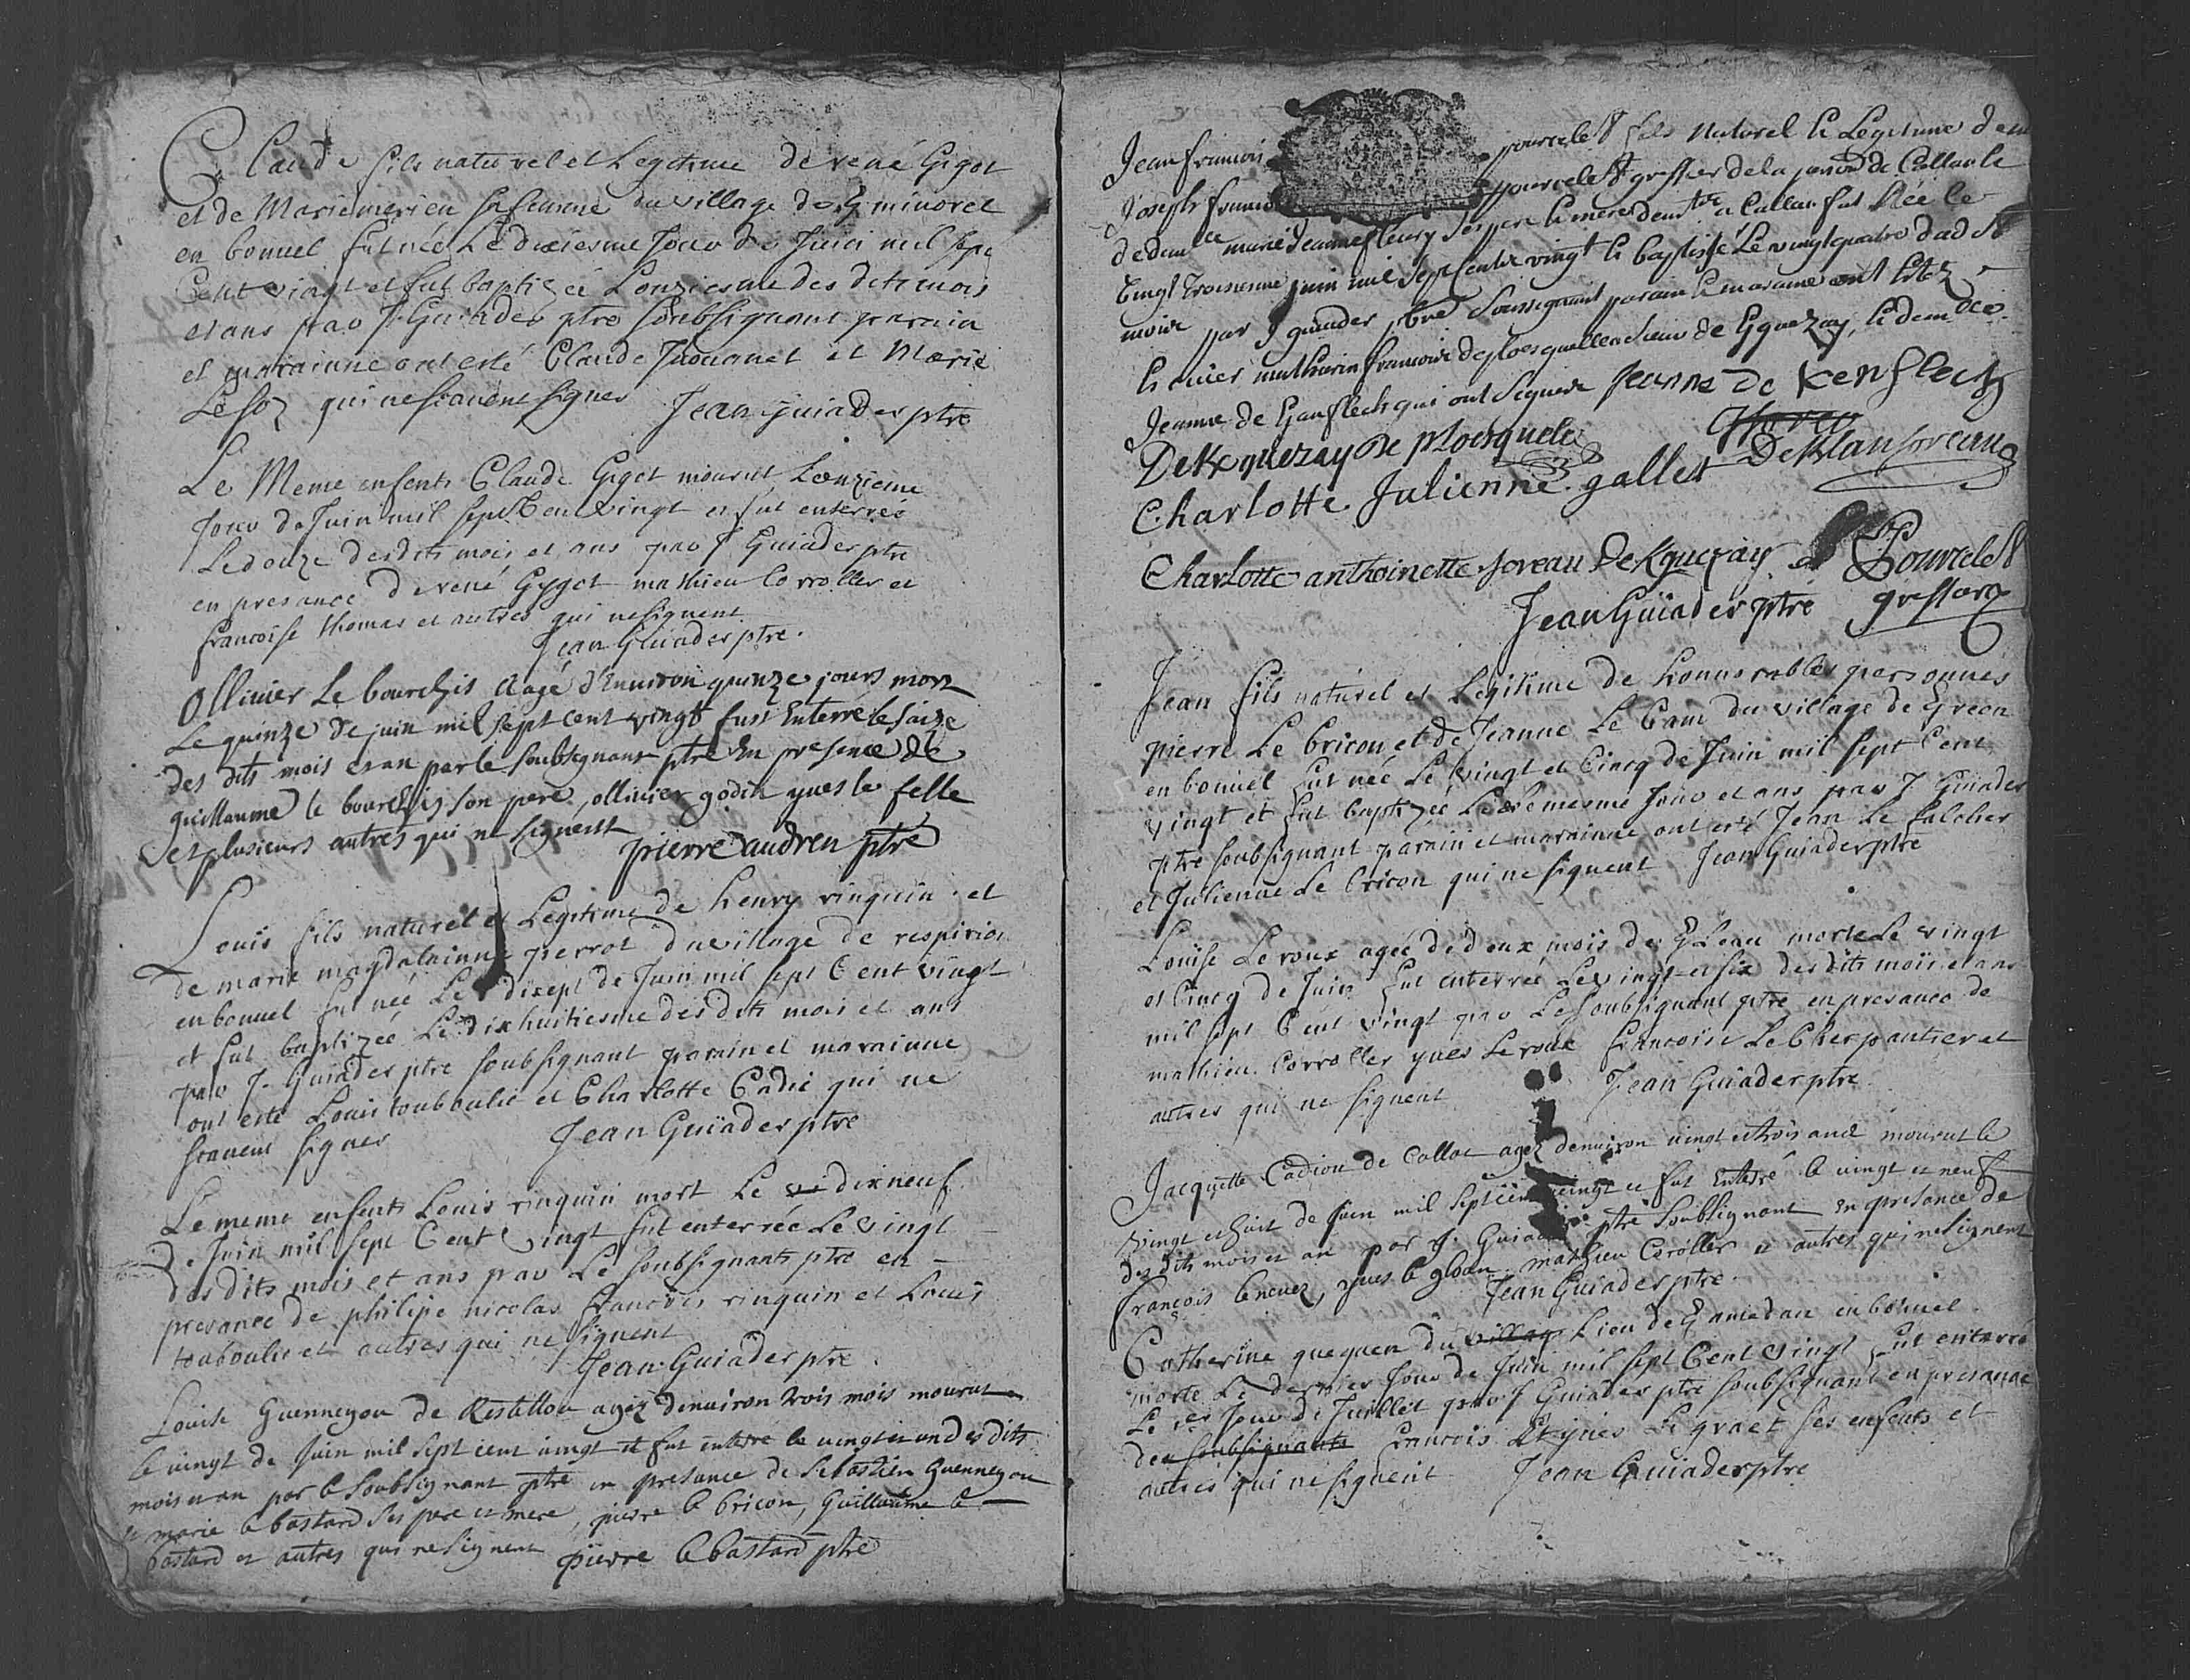 Claude fils naturel et Legitime de rené Gigot
et de Marie merien sa femme du village de Kminoret
en bonuel fut née Le dixiesme Jour de Juin mil sept
Cent vingt et fut baptizée Lonziesme des dits mois
et ans par J. Guiader ptre soubsignant parain
et marainne ont esté Claude Jaouanet et Marie
Le foz qui ne scavent signer Jean guiader ptre
Le Meme enfents Claude Gigot mourut Lonzieme
Jour de Juin mil sept Cent vingt et fut enterrée
Le douze desdits mois et ans par J Guiader ptre
en presance de rené Gygot mathieu Corroller et
francoise thomas et autres qui ne signent
Jean Guiader ptre.
Ollivier Le bourchis Aagé d'Environ quinze jours mort
Le quinze de juin mil sept cent vingt fust Enterré le saize
des dits mois et an par le soubsignant ptre En presence de
guillaume le bourchis son pere, ollivier godin yves le felle
et plusieurs autres qui ne signent
pierre audren ptre
Louis fils naturel et Legitime de henry rinquin et
de marie magdalainne perrot du village de respirion
en bonuel fut née Le dixsept de Juin mil sept Cent vingt
et fut baptizée Le dixhuitiesme des dits mois et ans
par J. Guiader ptre soubsignant parain et marainne
ont esté Louis toubboulic et Charlotte Cadic qui ne
scavent signer Jean Guiader ptre
Le meme enfents Louis rinquin mort Le vi dixneuf
De Juin mil sept Cent vingt fut enterrée Le vingt
des dits mois et ans par Le soubsignants ptre en
presance de philipe nicolas francois rinquin et Louis
toubouluc et autres qui ne signent
Jean Guiader ptre.
Louise Guennegou de Restellou agéz denviron trois mois mourut
le vingt de Juin mil sept cent vingt et fut enterré le vingt et un des dits
mois et an par le soubsignant ptre en presance de Sebastien Guennegou
et marie le bastard ses pere et mere, pierre le bricon, Guillaume le
bastard et autres qui ne signent pierre le bastard ptre
Jean francois pourcelet fils Naturel et Legitime de
Joseph francois pourcelet greffier de la
de dem lle marie Jeanne fleury ses pere et mere demts a Callac fut Née le
vingt troisiesme juin mil sept Cents vingt et baptisé Le vingt quatre dud
mois par J guiader ptre Soussignant parain et maraine ont Estez
mathurin francois de ploesquellec sieur de Kguezay, et dem lle
Jeanne de Kanflech qui ont Signés Jeanne de Kenflech
De Kguezay de ploesquelec
Charlotte Julienne gallet
Charlotte anthoinette Joreau De Kguezay Pourcelet
Jean Guiader ptre greffier
Jean fils naturel et Legitime de honnorables personnes
pierre Le bricon et de Jeanne Le Cam du village de Greon
en bonuel fut née Le vingt et Cincq de Juin mil sept Cent
vingt et fut baptizée Le mesme Jour et ans par J Guiader
ptre soubsignant parain et marainne ont esté Jean Le falcher
et Julienne Le bricon qui ne signent Jean Guiader ptre
Louise Le roux agée de deux mois de KLeau morte Le vingt
et Cincq de Juin fut enterrée Le vingt et six des dits mois et ans
mil sept Cent vingt par Le soubsignant ptre en presance de
mathieu Corroller yves Le roux francoise Le Cherpantier et
autres qui ne signent Jean Guiader ptre.
Jacquette Cadiou de Callac agez denviron vingt et trois ans mourut le
vingt et huit de Juin mil sept cent vingt et fut Enterré le vingt et neuf
des dits mois et an par J. Guiader ptre soubsignant en presance de
françois lenevez, yves le gloan, mathieu Coroller et autres qui ne signent
Jean Guiader ptre.
Catherine queguen du village Lieu de en bonuel
morte Le dernier Jour de Juin mil sept Cent vingt fut enterré
Le 1er Jour de Juillet par J Guiader ptre soubsignant en presance
des soubsignants francois Le graet ses enfents et
autres qui ne signent Jean Guiader ptre